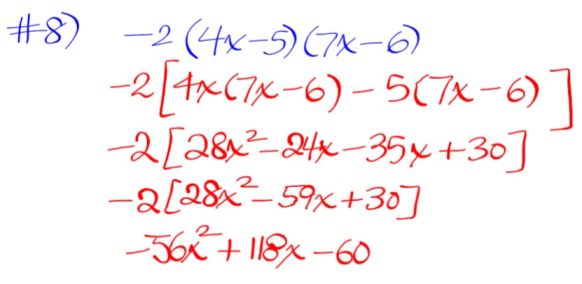 #8) -2(4x-5)(7x-6)
-2[4x(7x-6)-5(7x-6)]
-2[28x²-24x-35x+30]
-2[28x²-59x+30]
-56x²+118x-60